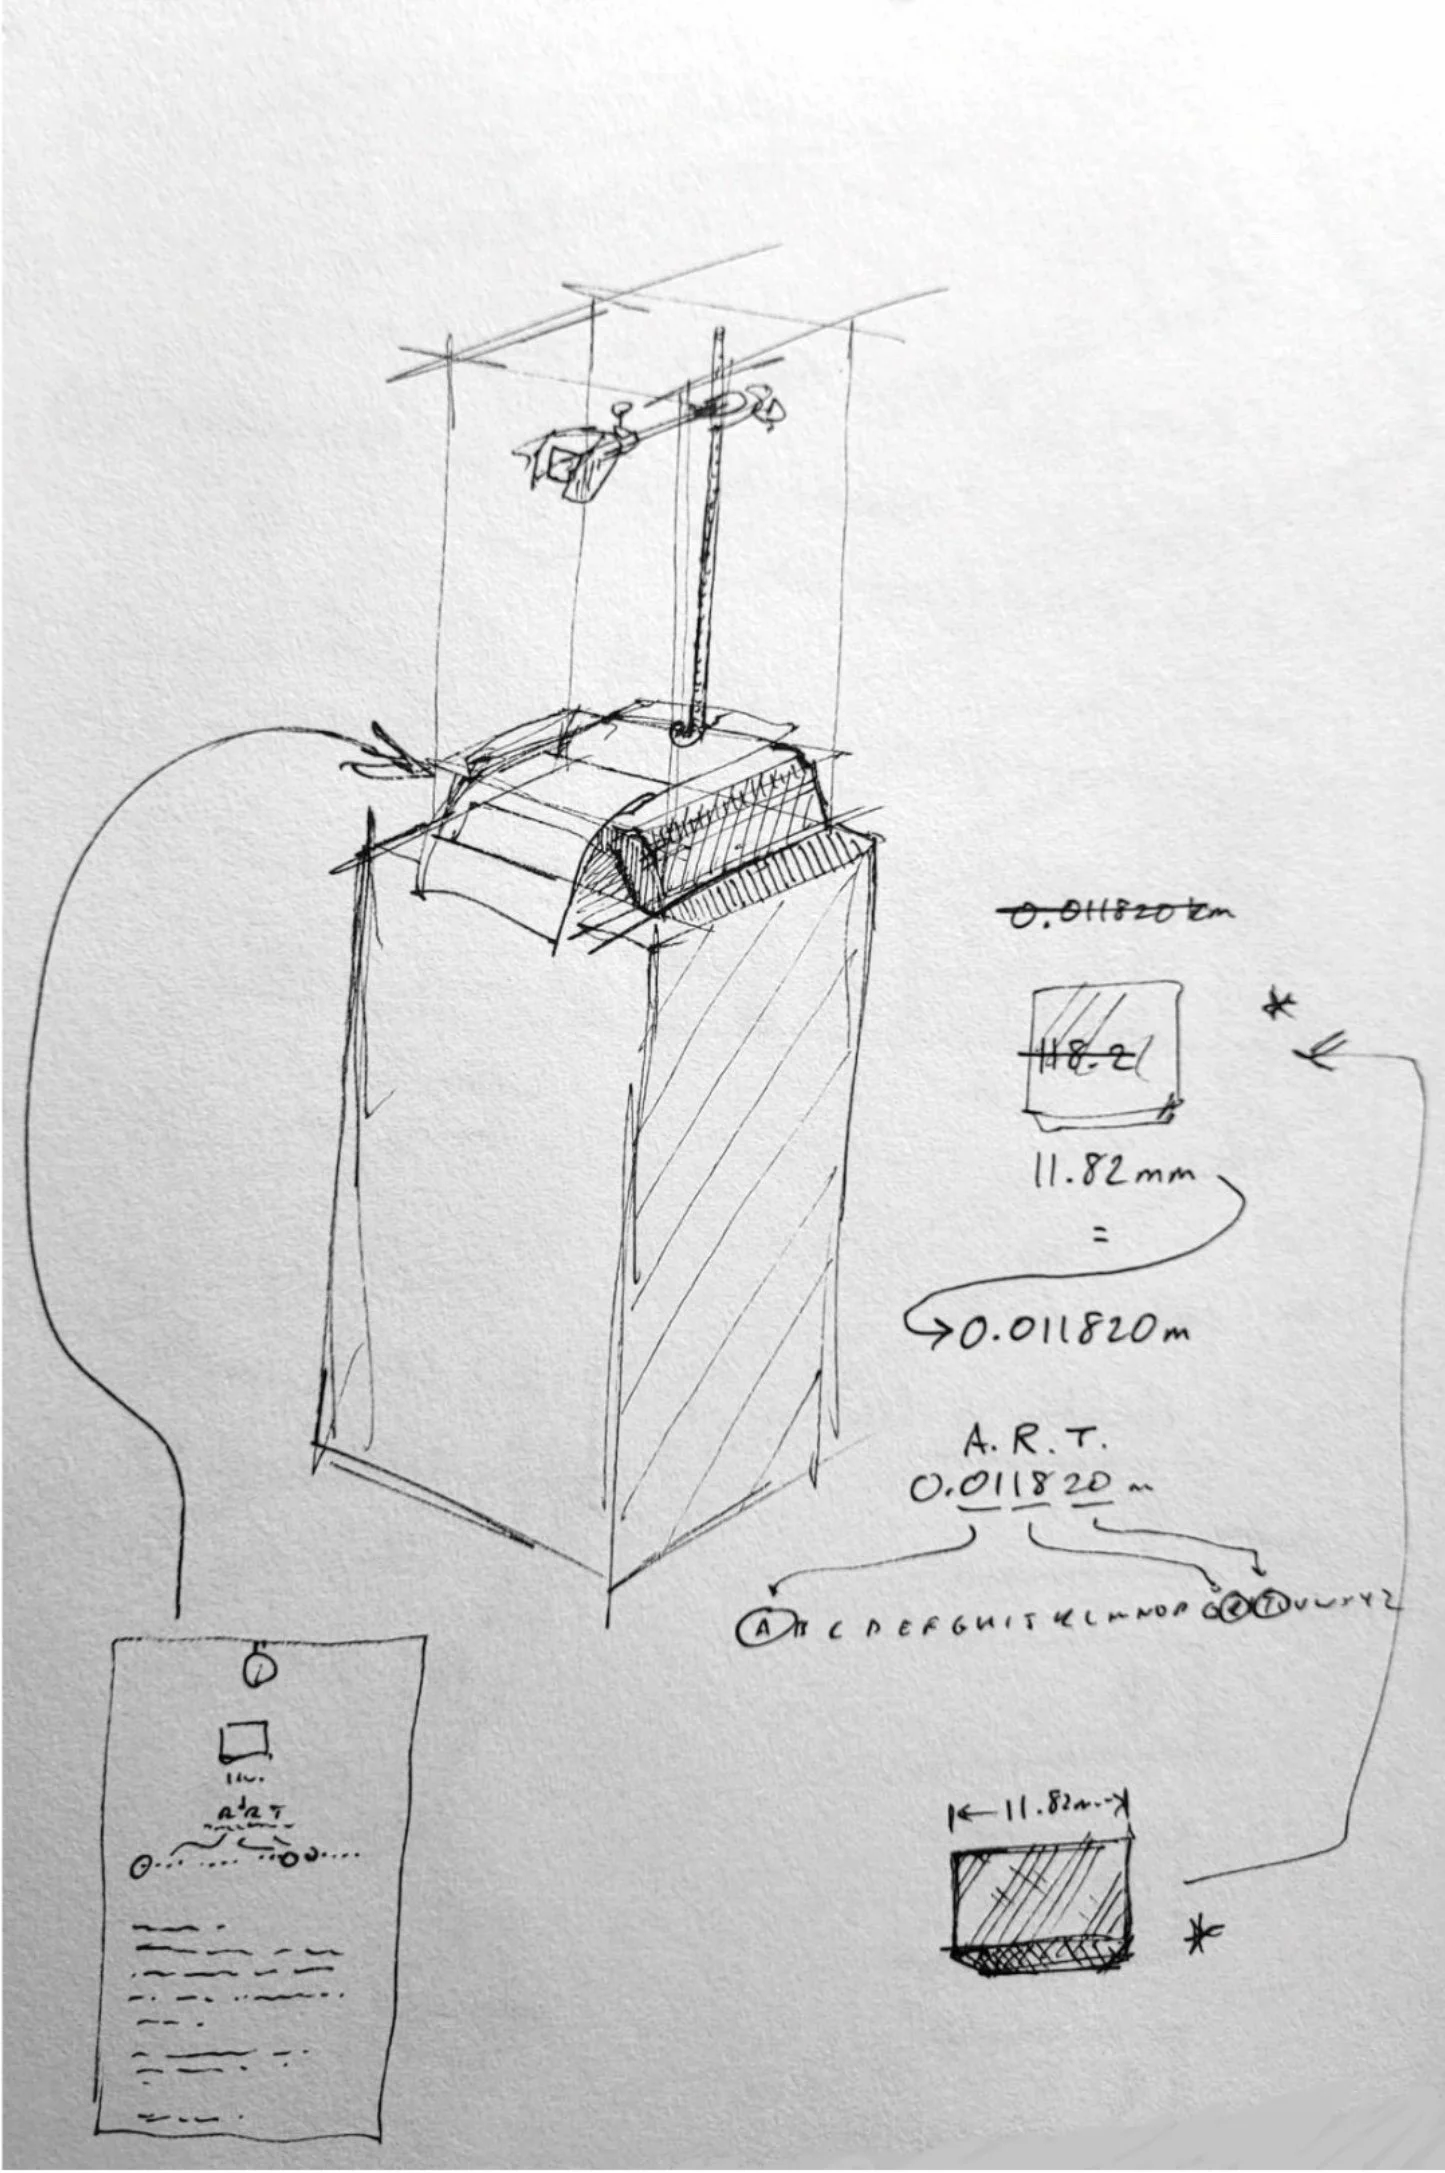 0.011820 km
118.2
11.82mm
=
0.011820m
A. R. T.
0.011820 m
A B C D E F G H I J K L M N O P Q R T U V W X Y Z
A R T
11.82mm
*
*